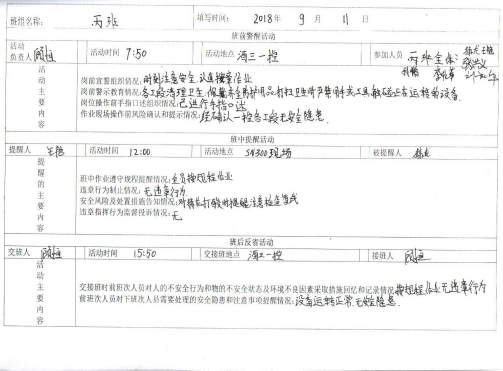 班组名称: 丙班 填写时间: 2018年 9月 11日
班前警醒活动
活动负责人 顾恒 活动时间 7:50 活动地点 酒三一控 参加人员 丙班全体:
活动主要内容
岗前宣誓组织情况: 时刻注意安全, 认真操作
岗前警示教育情况: 各工段清理卫生, 佩戴齐全防护用品, 打扫卫生时严禁用工具触碰正在运转的设备.
岗位操作前手指口述组织情况: 已进行手指口述
作业现场操作前风险确认和提示情况: 经确认一控各工段无安全隐患.
班中提醒活动
提醒人 活动时间 12:00 活动地点 SN300现场 被提醒人
提醒的主要内容
班中作业遵守规程提醒情况: 全员按规程作业
违章行为制止情况: 无违章行为
安全风险及处置措施告知情况: 对
违章指挥行为监督投诉情况: 无
班后反省活动
交班人 顾恒 活动时间 15:50 交接班地点 酒三一控 接班人 顾恒
活动主要内容
交接班时前班次人员对人的不安全行为和物的不安全状态及环境不良因素采取措施回忆和记录情况: 按规程作业无违章行为
前班次人员对下班次人员需要处理的安全隐患和注意事项提醒情况: 设备运转正常, 无安全隐患.